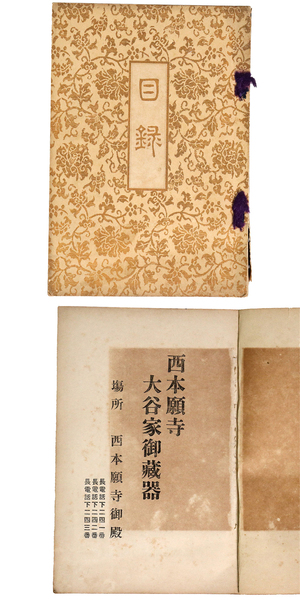 目録
西本願寺
大谷家御藏器
場所 西本願寺御殿
長電話下一四一番
長電話下一四二番
長電話下一四三番